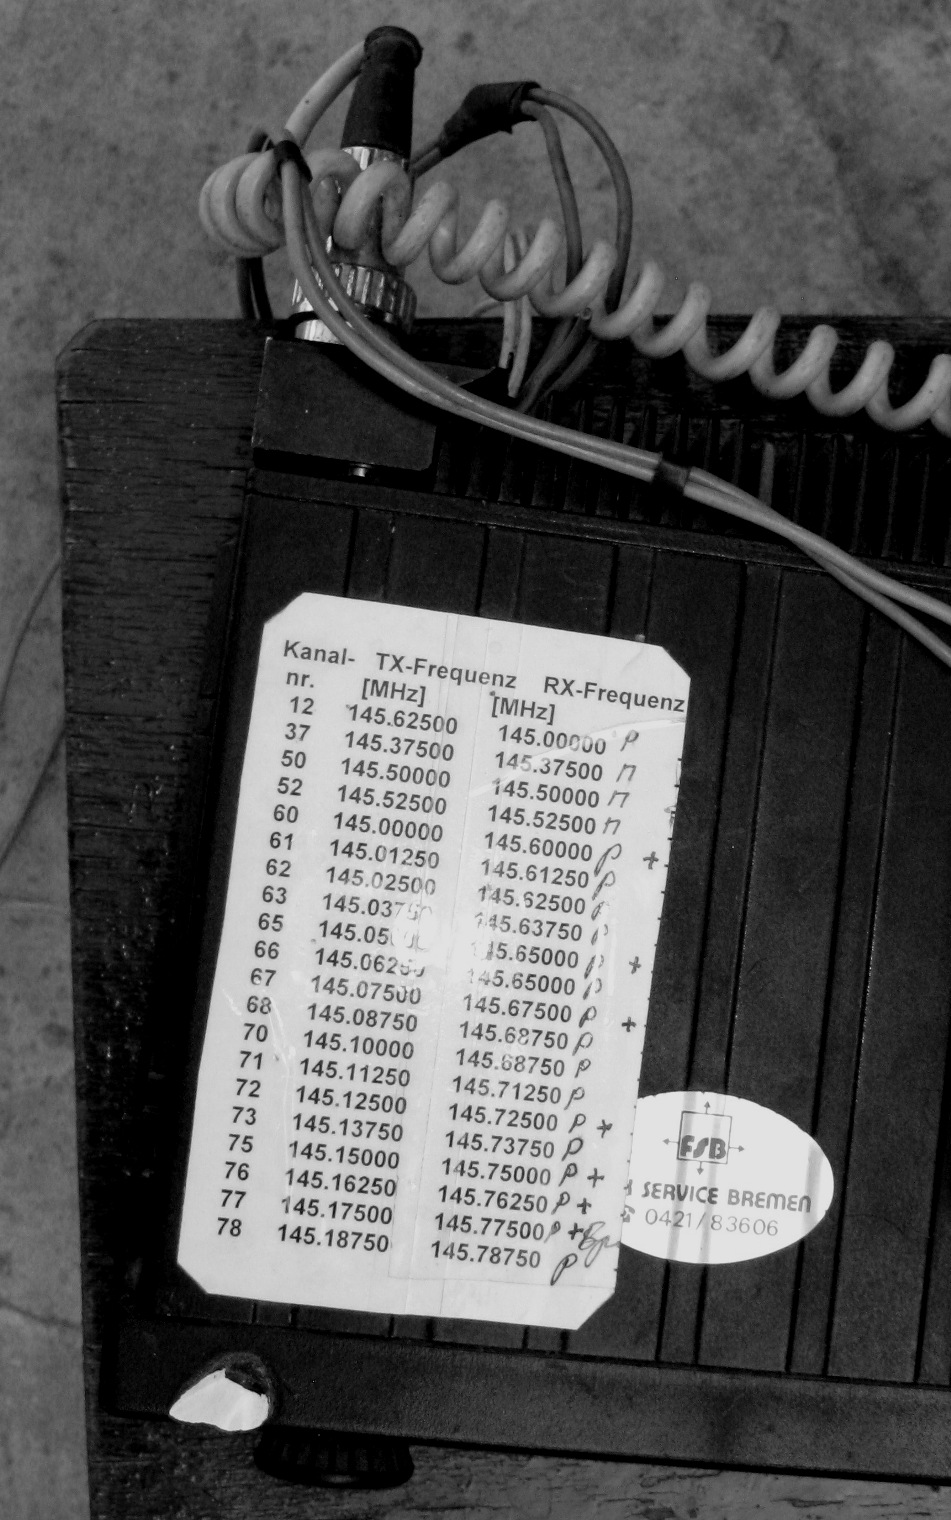 Kanal- TX-Frequenz RX-Frequenz
nr. [MHz] [MHz]
12 145.62500 145.00000 P
37 145.37500 145.37500 n
50 145.50000 145.50000 n
52 145.52500 145.52500 n
60 145.00000 145.60000 P +
61 145.01250 145.61250 P
62 145.02500 145.62500 P
63 145.03750 145.63750 P
65 145.05000 145.65000 P +
66 145.06250 145.65000 P
67 145.07500 145.67500 P +
68 145.08750 145.68750 P
70 145.10000 145.68750 P
71 145.11250 145.71250 P
72 145.12500 145.72500 P +
73 145.13750 145.73750 P
75 145.15000 145.75000 P +
76 145.16250 145.76250 P +
77 145.17500 145.77500 P +
78 145.18750 145.78750 P
FSB
SERVICE BREMEN
0421/83606